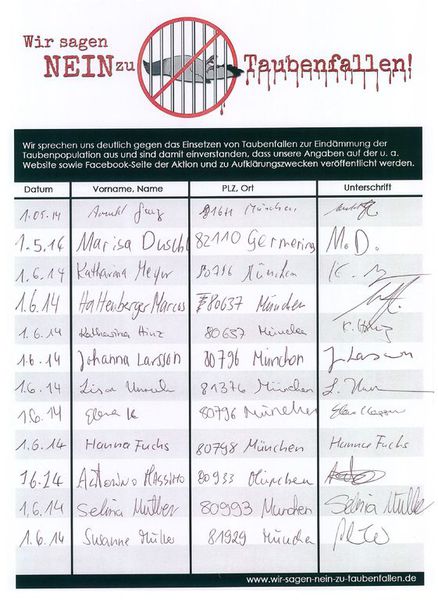 Wir sagen
NEIN zu Taubenfallen!
Wir sprechen uns deutlich gegen das Einsetzen von Taubenfallen zur Eindämmung der
Taubenpopulation aus und sind damit einverstanden, dass unsere Angaben auf der u. a.
Website sowie Facebook-Seite der Aktion und zu Aufklärungszwecken veröffentlicht werden.
Datum Vorname, Name PLZ, Ort Unterschrift
München
1.5.14 Marisa 82110 Germering M.D.
1.6.14 Katharina Meyer München
1.6.14 Hattenberger Marcos 80637 München
1.6.14 Katharina Hinz 80637 München K. Hinz
1.6.14 Johanna Larsson 80796 München J. Larsson
1.6.14 Lisa 81376 München L.
1.6.14 80796 München
1.6.14 Hanna Fuchs 80798 München Hanna Fuchs
1.6.14 Massimo 80933 München
1.6.14 Selina Müller 80993 München Selina Müller
1.6.14 Susanne Müller 81929 München
www.wir-sagen-nein-zu-taubenfallen.de